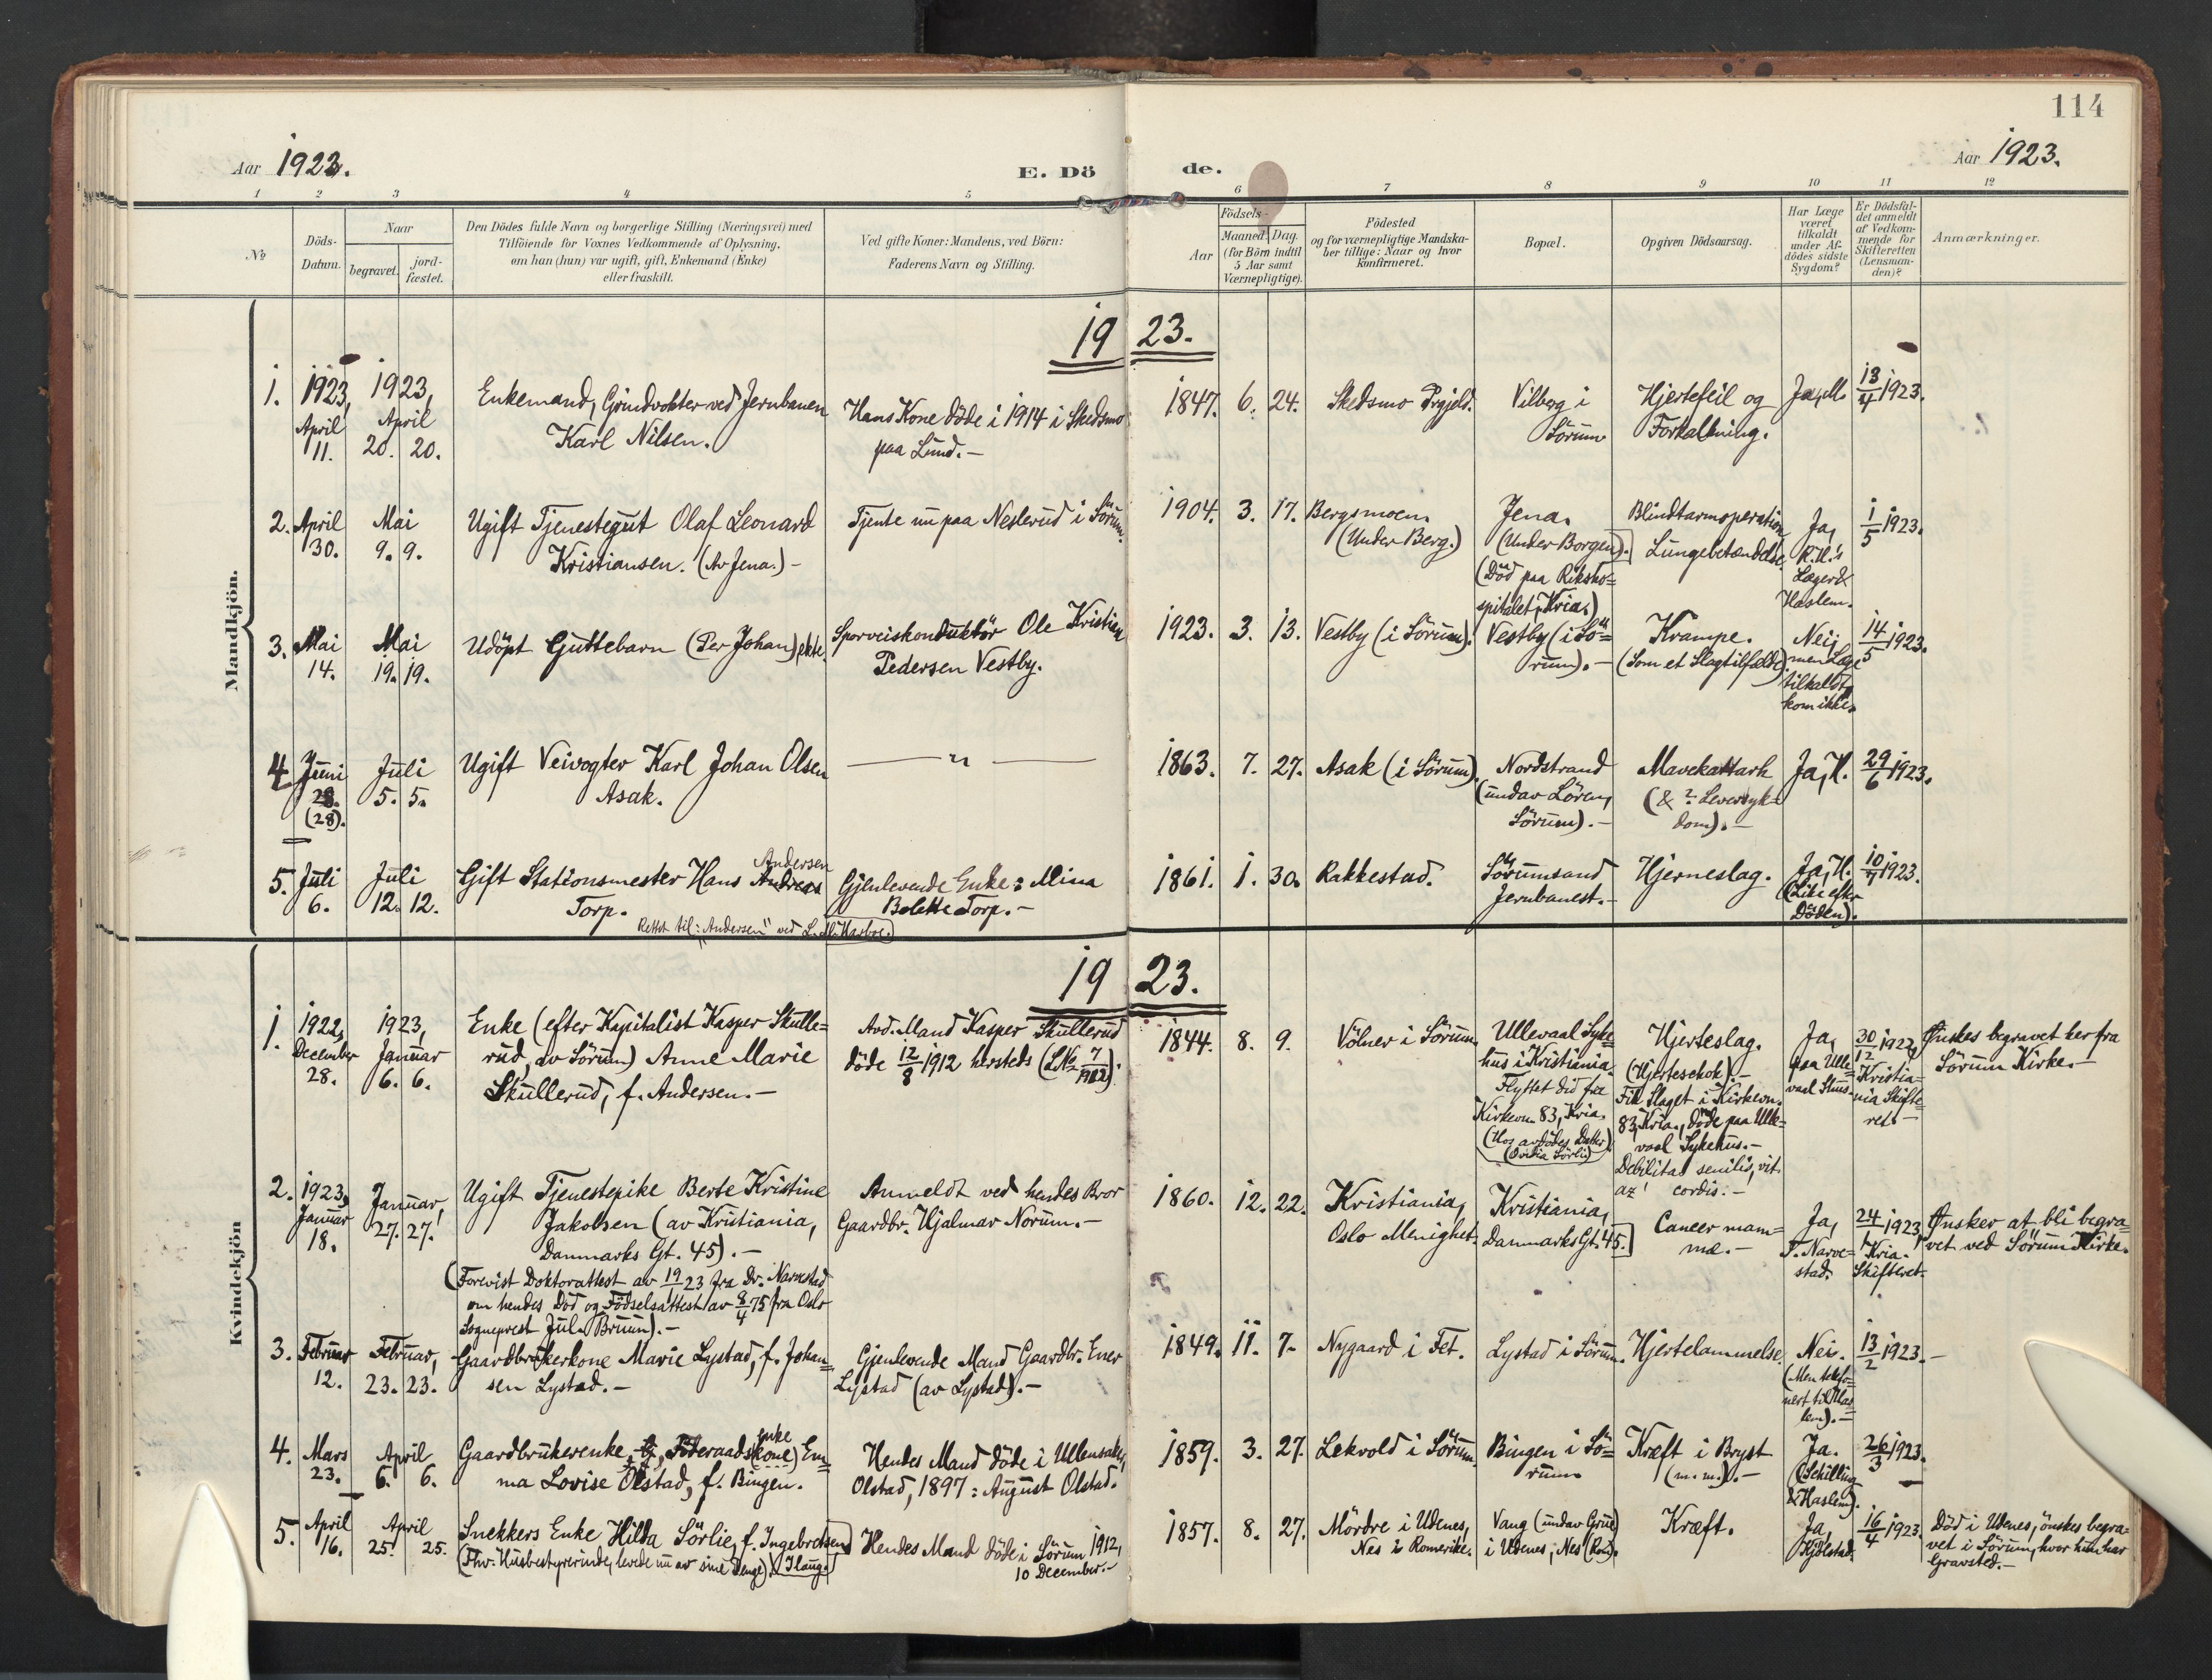 114
Aar 1923.
E. Dö de.
Aar 1923.
1 2 3 4 5 6 7 8 9 10 11 12
No
Döds-
Datum.
Naar
begravet.
jord-
fæstet.
Den Dödes fulde Navn og borgerlige Stilling (Næringsvei) med
Tilföiende for Voxnes Vedkommende af Oplysning,
om han (hun) var ugift, gift, Enkemand (Enke)
eller fraskilt.
Ved gifte Koner: Mandens, ved Börn:
Faderens Navn og Stilling.
Födsels-
Aar
Maaned. Dag.
(for Börn indtil
5 Aar samt
Værnepligtige).
Födested
og for værnepligtige Mandska-
ber tillige: Naar og hvor
konfirmeret.
Bopæl.
Opgiven Dödsaarsag.
Har Læge
været
tilkaldt
under Af-
dödes sidste
Sygdom?
Er Dödsfal-
det anmeldt
af Vedkom-
mende for
Skifteretten
(Lensman-
den)?
Anmærkninger.
Mandkjön.
1923.
1.
1923,
April
11.
1923,
April
20. 20.
Enkemand, Grindvokter ved Jernbanen
Karl Nilsen.
Hans Kone döde i 1914 i Skedsmo
paa Lund.-
1847. 6. 24.
Skedsmo Prgjeld.
Vilberg i
Sörum
Hjertefeil og
Forkalkning.
Ja, M.
13/4 1923.
2.
April
30.
Mai
9. 9.
Ugift Tjenestegut Olaf Leonard
Kristiansen. (Av Jena.)-
Tjente nu paa Neslerud i Sörum.
1904. 3. 17.
Bergsmoen
(Under Berg.)
Jena.
(Under Borgen).
(Död paa Riksho=
spitalet, Kria.)
Blindtarmoperation
Lungebetændelse.
Ja,
R.H.'s
Læger &
Haslem.
1/5 1923.
3.
Mai
14.
Mai
19. 19.
Udöpt Guttebarn (Per Johan), ekte.
Sporveiskonduktör Ole Kristian
Pedersen Vestby.
1923. 3. 13.
Vestby (i Sörum).
Vestby (i Sö=
rum).-
Krampe.
(Som et Slagtilfælde)
Nei,
men Læge
tilkaldt,
kom ikke.
14/5 1923.
4.
Juni
28.
(28).
Juli
5. 5.
Ugift Veivogter Karl Johan Olsen
Asak.
— " —
1863. 7. 27.
Asak (i Sörum).
Nordstrand
(undav Lören,
Sörum).-
Mavekattarh
(& ? Leversyk=
dom).-
Ja, H.
29/6 1923.
5.
Juli
6.
Juli
12. 12.
Andersen
Gift Stationsmester Hans Andreas
Torp.
Rettet til: "Andersen" ved L. M. Hasboe.
Gjenlevende Enke: Mina
Bolette Torp.-
1861. 1. 30.
Rakkestad.
Sörumsand
Jernbanest.-
Hjerneslag.
Ja, H.
(Like efter
Döden).
10/7 1923.
Kvindekjön
1923.
1.
1922,
December
28.
1923,
Januar
6. 6.
Enke (efter Kapitalist Kasper Skulle=
rud, av Sörum) Anne Marie
Skullerud, f. Andersen.-
Avd. Mand Kasper Skullerud
döde 12/8 1912 hersteds (LNo 7/1912).
1844. 8. 9.
Völner i Sörum
Ullevaal Syke
hus i Kristiania.
Flyttet did fra
Kirkevn. 83, Kria.
(Hos avdödes Datter)
(Ovidia Sörlie)
Hjerteslag.
(Hjerteschok).-
Fik Slaget i Kirkevn.
83, Kria., döde paa Ulle=
vaal Sykehus.-
Ja,
paa Ulle=
vaal Skhus.
30/12 1922,
Kristia=
nia Skifte
ret.-
Ønskes begravet her fra
Sörum Kirke.-
2.
1923,
Januar
18.
Januar,
27. 27.
Ugift Tjenestepike Berte Kristine
Jakobsen (av Kristiania,
Danmarks Gt. 45).-
(Forevist Doktorattest av 19/1 23 fra Dr. Narvestad
om hendes Död og Födselsattest av 8/4 75 fra Oslo
Sogneprest Jul. Bruun).-
Anmeldt ved hendes Bror
Gaardbr. Hjalmar Norum.-
1860. 12. 22.
Kristiania,
Oslo Menighet.
Kristiania,
Danmarks Gt. 45.
Debilitas senilis, vit.
cordis.-
Cancer mam=
mæ.-
Ja,
T. Narve=
stad.
24/1 1923,
Kria.
Skifteret.
Ønsker at bli begra=
vet ved Sörum Kirke.
3.
Februar
12.
Februar,
23. 23.
Gaardbrukerkone Marie Lystad, f. Johan=
sen Lystad.-
Gjenlevende Mand Gaardbr. Ener
Lystad (av Lystad).-
1849. 11. 7.
Nygaard i Fet.
Lystad i Sörum.
Hjertelammelse.
Nei.
(Men telefo=
nert til Has=
lem).-
13/2 1923.-
4.
Mars
23.
April
6. 6.
enke
Gaardbrukerenke, Föderaadskone) Em=
ma Lovise Olstad, f. Bingen.
Hendes Mand döde i Ullensaker,
Olstad, 1897: August Olstad.
1859. 3. 27.
Lekvold i Sörum.
Bingen i Sö=
rum
Kræft i Bryst
(m. m.).-
Ja.
(Schilling
& Haslem).
26/3 1923.
5.
April
16.
April
25. 25.
Snekkers Enke Hilda Sörlie, f. Ingebretsen
(Fhv. Husbestyrerinde, levede nu av sine Penge). (Haug.)
Hendes Mand döde i Sörum 1912,
10 December.-
1857. 8. 27.
Mördre i Udenes,
Nes i Romerike.
Vang (undav Grue)
i Udenes, Nes (Rom).
Kræft.
Ja,
Kjölstad.
16/4 1923.
Död i Udenes, önskes begra=
vet i Sörum, hvor hun har
Gravsted.-